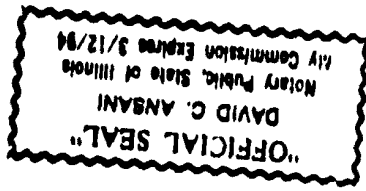 "OFFICIAL SEAL"
DAVID C. ANSANI
Notary Public, State of Illinois
My Commission Expires 3/12/94